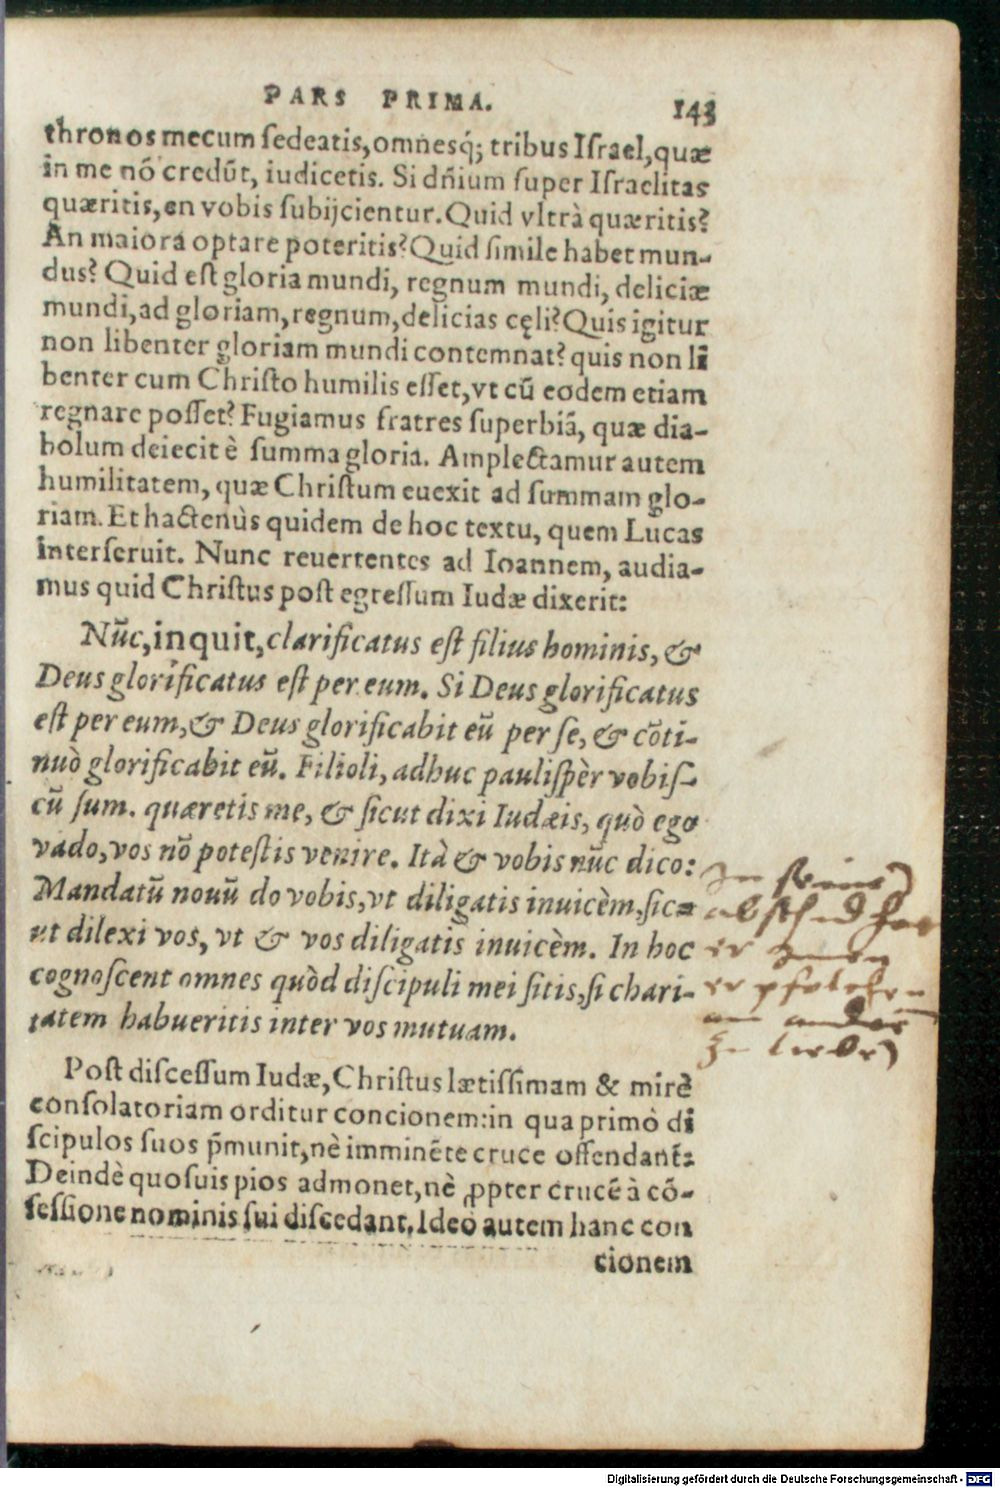 PARS PRIMA. 143
thronos mecum ſedeatis, omnesq́; tribus Iſrael, quæ
in me nō credūt, iudicetis. Si dñium ſuper Iſraelitas
quæritis, en vobis ſubijcientur. Quid vltrà quæritis?
An maiora optare poteritis? Quid ſimile habet mun-
dus? Quid eſt gloria mundi, regnum mundi, deliciæ
mundi, ad gloriam, regnum, delicias cęli? Quis igitur
non libenter gloriam mundi contemnat? quis non li
benter cum Chriſto humilis eſſet, vt cū eodem etiam
regnare poſſet? Fugiamus fratres ſuperbiā, quæ dia-
bolum deiecit è ſumma gloria. Amplectamur autem
humilitatem, quæ Chriſtum euexit ad ſummam glo-
riam. Et hactenùs quidem de hoc textu, quem Lucas
interſeruit. Nunc reuertentes ad Ioannem, audia-
mus quid Chriſtus poſt egreſſum Iudæ dixerit:
Nūc, inquit, clarificatus eſt filius hominis, &
Deus glorificatus eſt per eum. Si Deus glorificatus
eſt per eum, & Deus glorificabit eū per ſe, & cōti-
nuò glorificabit eū. Filioli, adhuc pauliſpèr vobiſ-
cū ſum. quæretis me, & ſicut dixi Iudæis, quò ego
vado, vos nō poteſtis venire. Ità & vobis nūc dico:
Mandatū nouū do vobis, vt diligatis inuicèm, ſic-
ut dilexi vos, vt & vos diligatis inuicèm. In hoc
cognoſcent omnes quòd diſcipuli mei ſitis, ſi chari-
tatem habueritis inter vos mutuam.
In ſeine
abſchid hat
er
er pfolchen
ein ander
zu lieben
Poſt diſceſſum Iudæ, Chriſtus lætiſſimam & mirè
conſolatoriam orditur concionem: in qua primò di
ſcipulos ſuos p̄munit, nè imminēte cruce offendant̄:
Deindè quoſuis pios admonet, nè ꝓpter crucē à cō-
feſſione nominis ſui diſcedant. Ideò autem hanc con
cionem
Digitalisierung gefördert durch die Deutsche Forschungsgemeinschaft - DFG